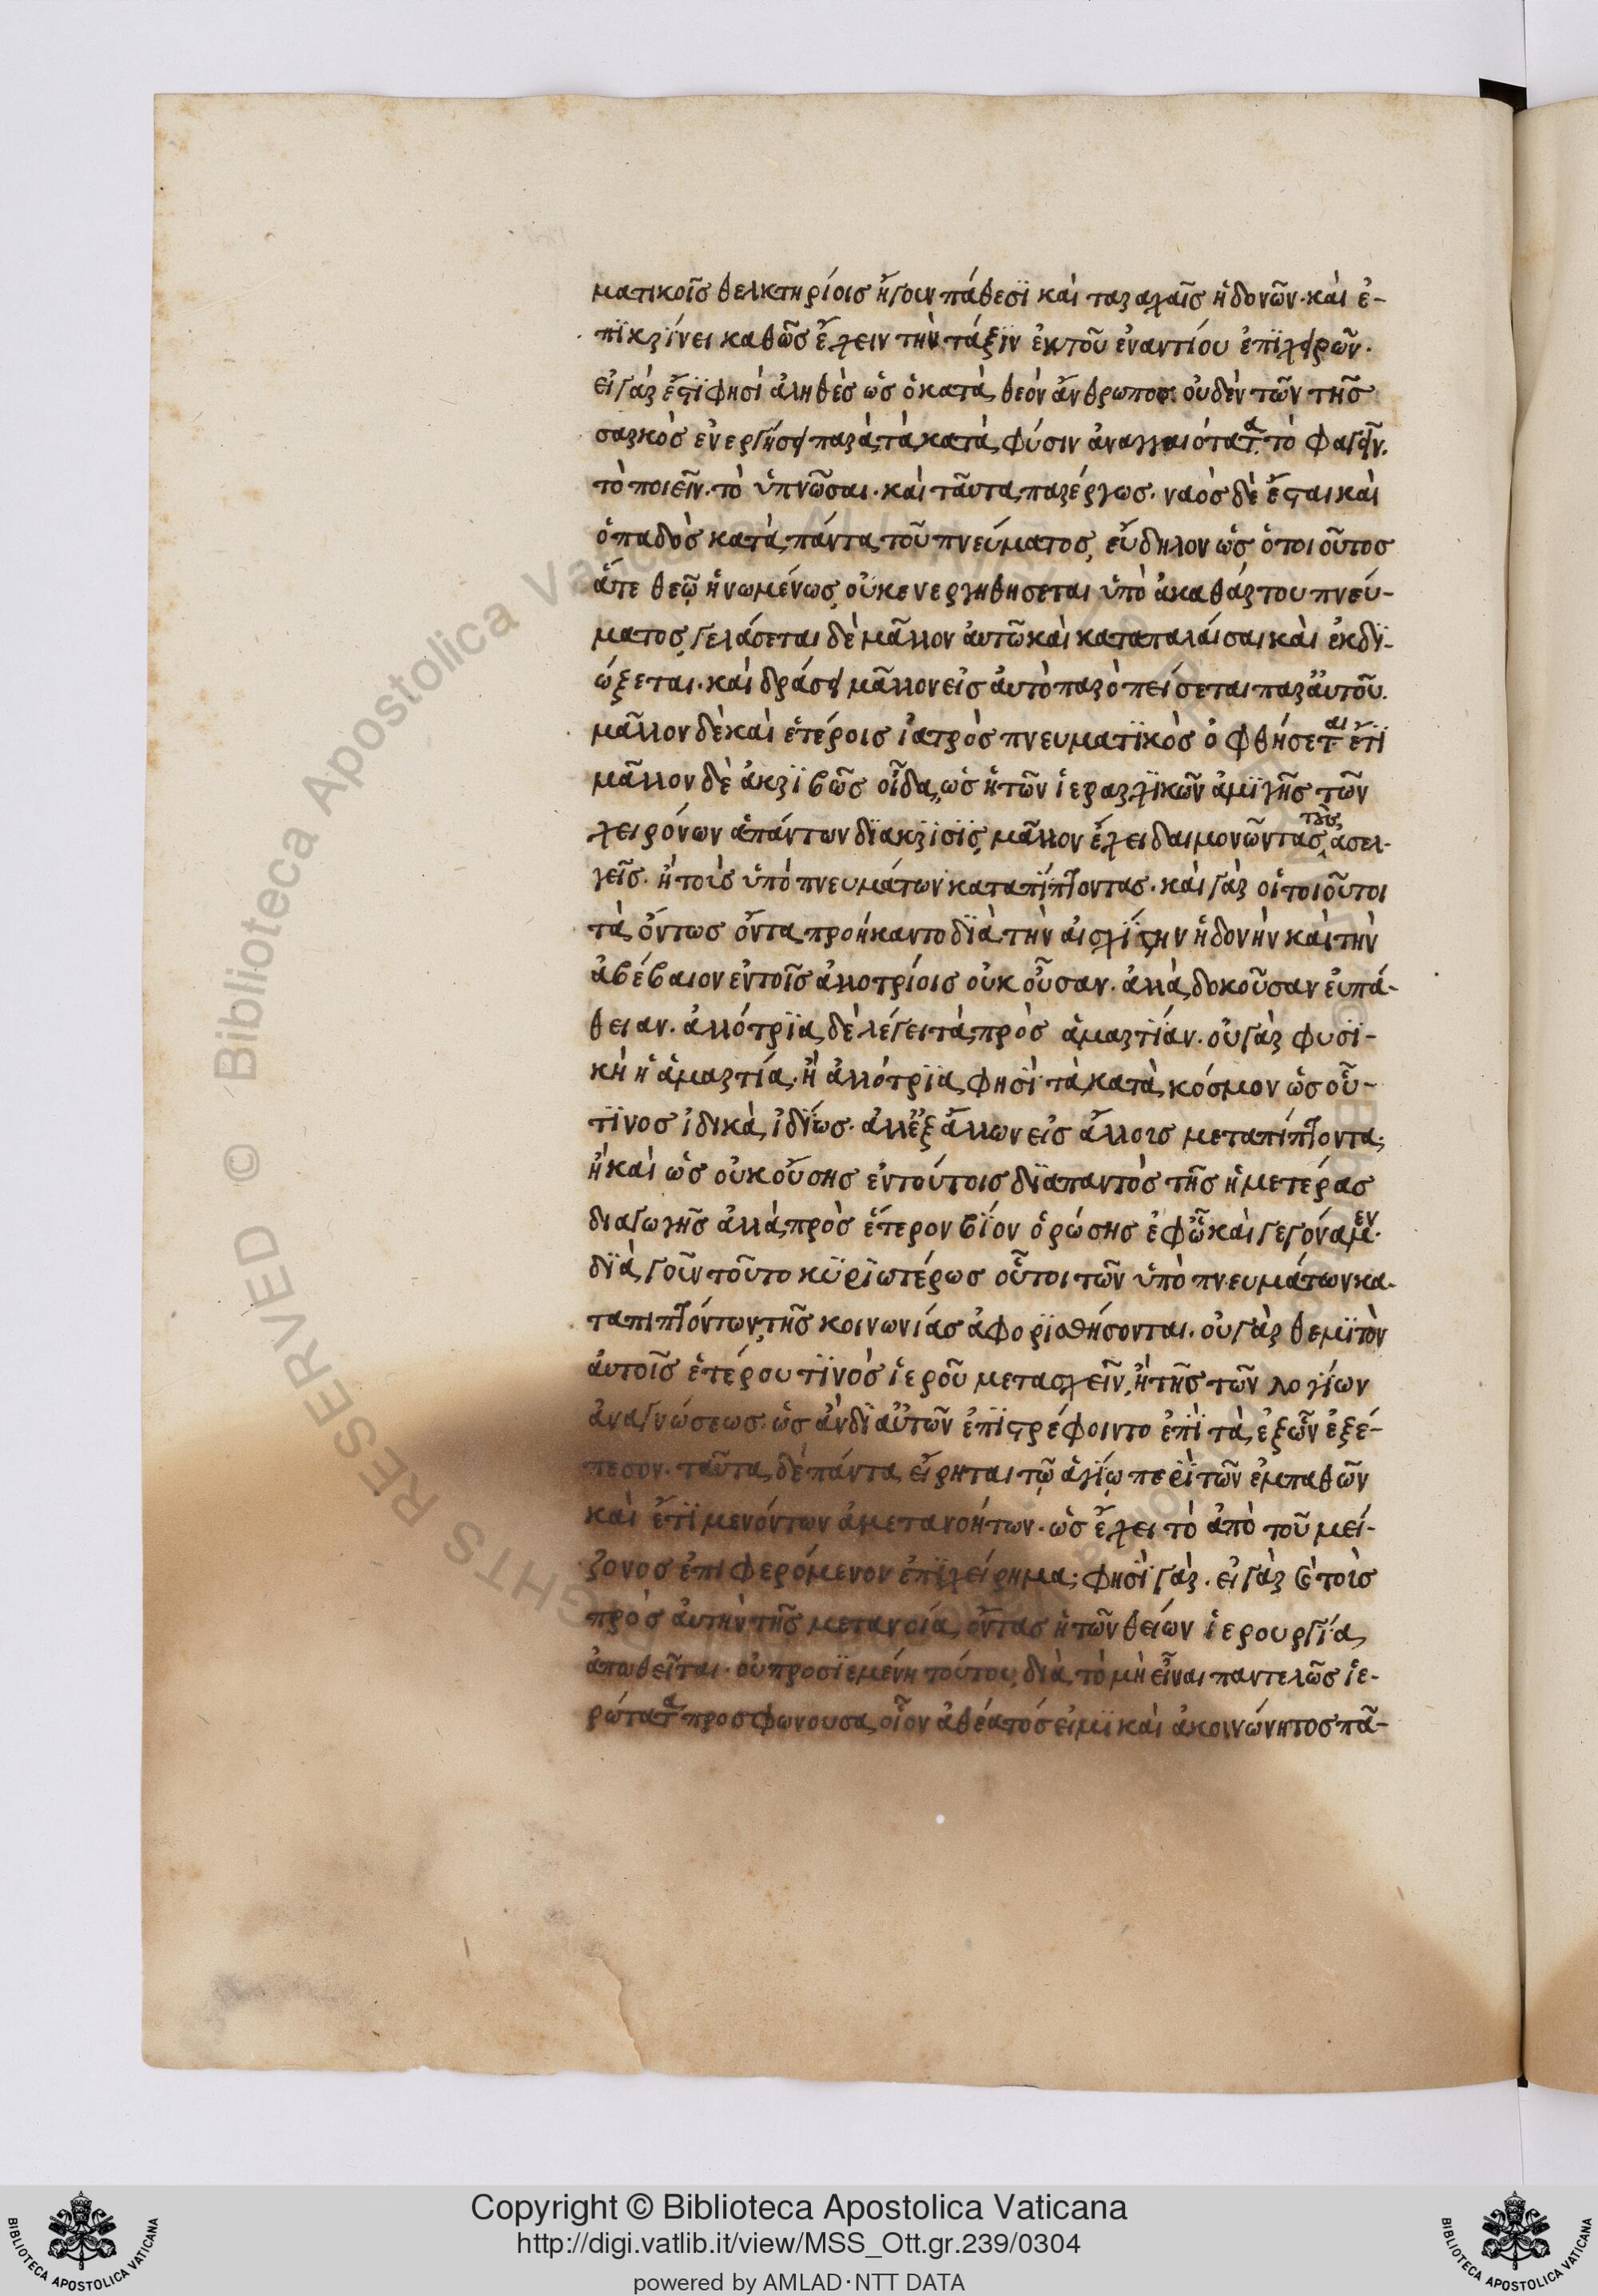 ματικοῖς θελκτηρίοις ἤγουν πάθεσϊ καὶ ταραχαῖς ἡδονῶν· καὶ ἐ-
πϊκρϊνει καθῶς ἔχειν τὴν τάξϊν ἐκ τοῦ ἐναντίου ἐπϊχειρῶν.
εἰ γάρ ἐστϊ φησὶ ἀληθὲς ὡς ὁ κατὰ θεὸν ἄνθρωπος οὐδὲν τῶν τῆς
σαρκὸς ἐνεργήσει παρὰ τὰ κατὰ φύσιν ἀναγκαιότατα τὸ φαγεῖν.
τὸ ποιεῖν. τὸ ὑπνῶσαι· καὶ ταῦτα παρέργως. ναὸς δὲ ἔσται καὶ
ὀπαδὸς κατὰ πάντα τοῦ πνεύματος, εὔδηλον ὡς ὁ τοιοῦτος
ἅτε θεῷ ἡνωμένως, οὐκ ενεργηθησεται ὑπὸ ἀκαθάρτου πνεύ-
ματος, γελάσεται δὲ μᾶλλον ἀυτῶ καὶ καταπαλαίσαι καὶ ἐκδϊ-
ώξεται. καὶ δράσει μᾶλλον εἰς ἀυτὸ παρὸ πείσεται παρ ἀυτοῦ.
μᾶλλον δὲ καὶ ἑτέροις ἰατρὸς πνευματϊκὸς ὀφθήσεται ἔτϊ
μᾶλλον δὲ ἀκρϊβῶς οἶδα, ὡς ἡ τῶν ἱεραρχϊκῶν ἀμϊγὴς τῶν
χειρόνων ἁπάντων δϊακρϊσϊς, μᾶλλον ἔχει δαιμονῶντας τοὺς ἀσελ-
γεῖς. ἢ τοὺς ὑπὸ πνευμάτων καταπίπτοντας. καὶ γὰρ οἱ τοιοῦτοι
τὰ ὄντως ὄντα προήκαντο δϊὰ τὴν ἀισχίστην ἡδονὴν καὶ τὴν
ἀβέβαιον ἐν τοῖς ἀλλοτρίοις οὐκ οὖσαν. ἀλλὰ δοκοῦσαν ἐυπά-
θειαν. ἀλλότρϊα δὲ λέγει τὰ πρὸς ἁμαρτϊαν. οὐ γὰρ φυσϊ-
κὴ ἡ ἁμαρτία. ἢ ἀλλότρϊα φησὶ τὰ κατὰ κόσμον ὡς οὔ-
τϊνος ἰδικὰ ἰδίως. ἀλλ ἐξ ἄλλων εἰς ἄλλοις μεταπίπτοντα;
ἢ καὶ ὡς οὐκ οὔσης ἐν τούτοις δϊαπαντὸς τῆς ἡμετέρας
διαγωγῆς ἀλλὰ πρὸς ἕτερον βΐον ὁρώσης ἐφ ᾧ καὶ γεγόναμεν.
δϊὰ γοῦν τοῦτο κϋρϊωτέρως οὗτοι τῶν ὑπὸ πνευμάτων κα-
ταπιπτόντων, τῆς κοινωνίας ἀφορϊσθήσονται. οὐ γὰρ θεμϊτὸν
ἀυτοῖς ἑτέρου τϊνὸς ἱεροῦ μετασχεῖν, ἢ τῆς τῶν λογίων
ἀναγνώσεως. ὡς ἂν δϊ ἀυτῶν ἐπϊστρέφοιντο ἐπὶ τὰ ἐξ ὧν ἐξέ-
πεσον. ταῦτα δὲ πάντα εἴρηται τῷ ἁγίῳ περὶ τῶν ἐμπαθῶν
καὶ ἔτϊ μενόντων ἀμετανοήτων. ὡς ἔχει τὸ ἀπὸ τοῦ μεί-
ζονος ἐπιφερόμενον ἐπϊχείρημα; φησὶ γὰρ. εἰ γὰρ καὶ τοὺς
πρὸς ἀυτὴν τῆς μετανοία ὄντας ἡ τῶν θείων ἱερουργΐα
ἀπωθεῖται. οὐ προσϊεμένη τούτου, διὰ τὸ μὴ εἶναι παντελῶς ἱε-
ρώτατα προσφωνουσα οἷον ἀθέατός εἰμϊ καὶ ἀκοινώνητος πᾶ-
Copyright © Biblioteca Apostolica Vaticana
http://digi.vatlib.it/view/MSS_Ott.gr.239/0304
powered by AMLAD·NTT DATA